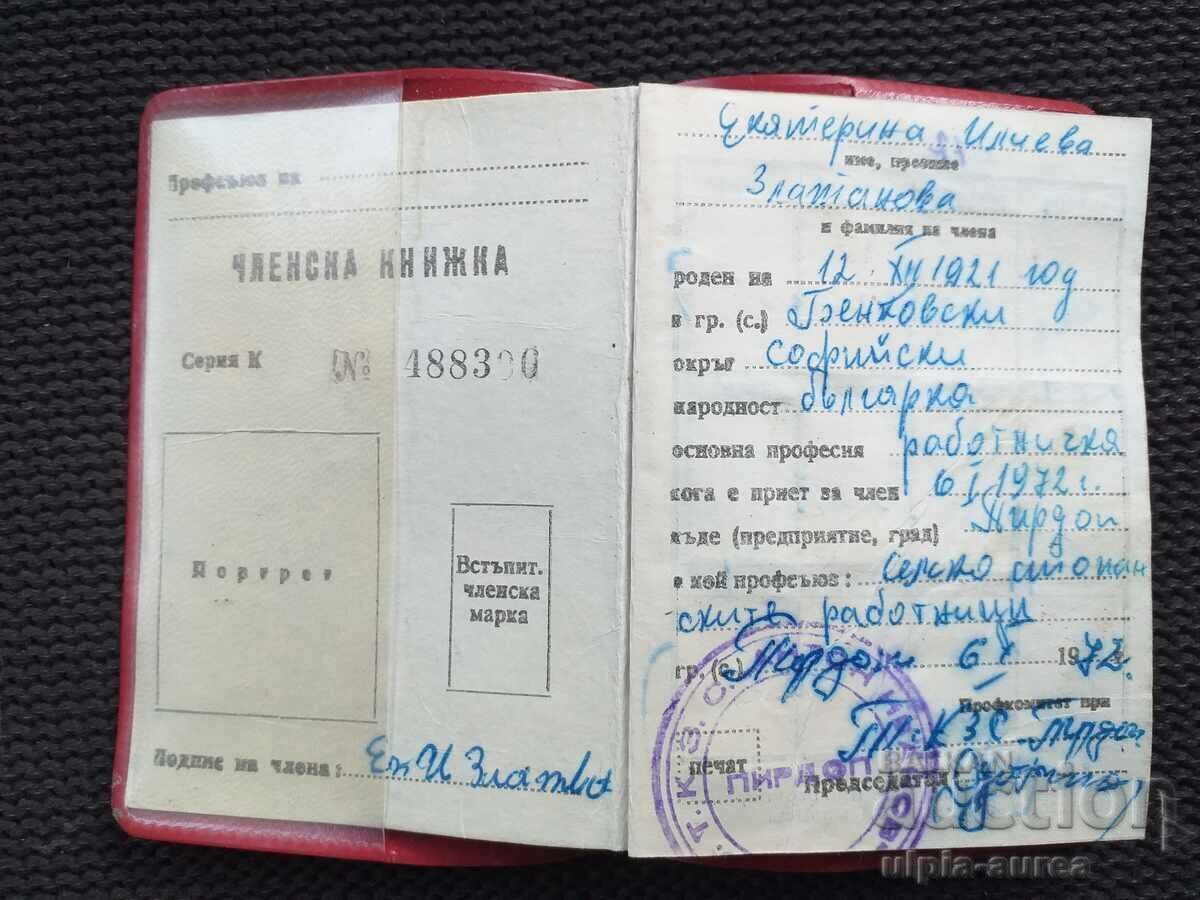 Профсъюз на
ЧЛЕНСКА КНИЖКА
Серия К № 488300
Портрет
Встъпит.
членска
марка
Подпис на члена: Ек И Злат
Екатерина Илчева
име, презиме
Златанова
и фамилия на члена
роден на 12 XII 1921 год
в гр. (с.) Бенковски
окръг Софийски
народност българка
основна професия работничка
кога е приет за член 6 I 1972 г.
къде (предприятие, град) Пирдоп
в кой профсъюз: Селско стопан
ските работници
гр. (с.) Пирдоп 6 I 1972 г.
Профкомитет при
ТКЗС Пирдоп
печат
Председател
Т. К. З. С.
ПИРДОП
BALKAN
auction
ulpia-aurea